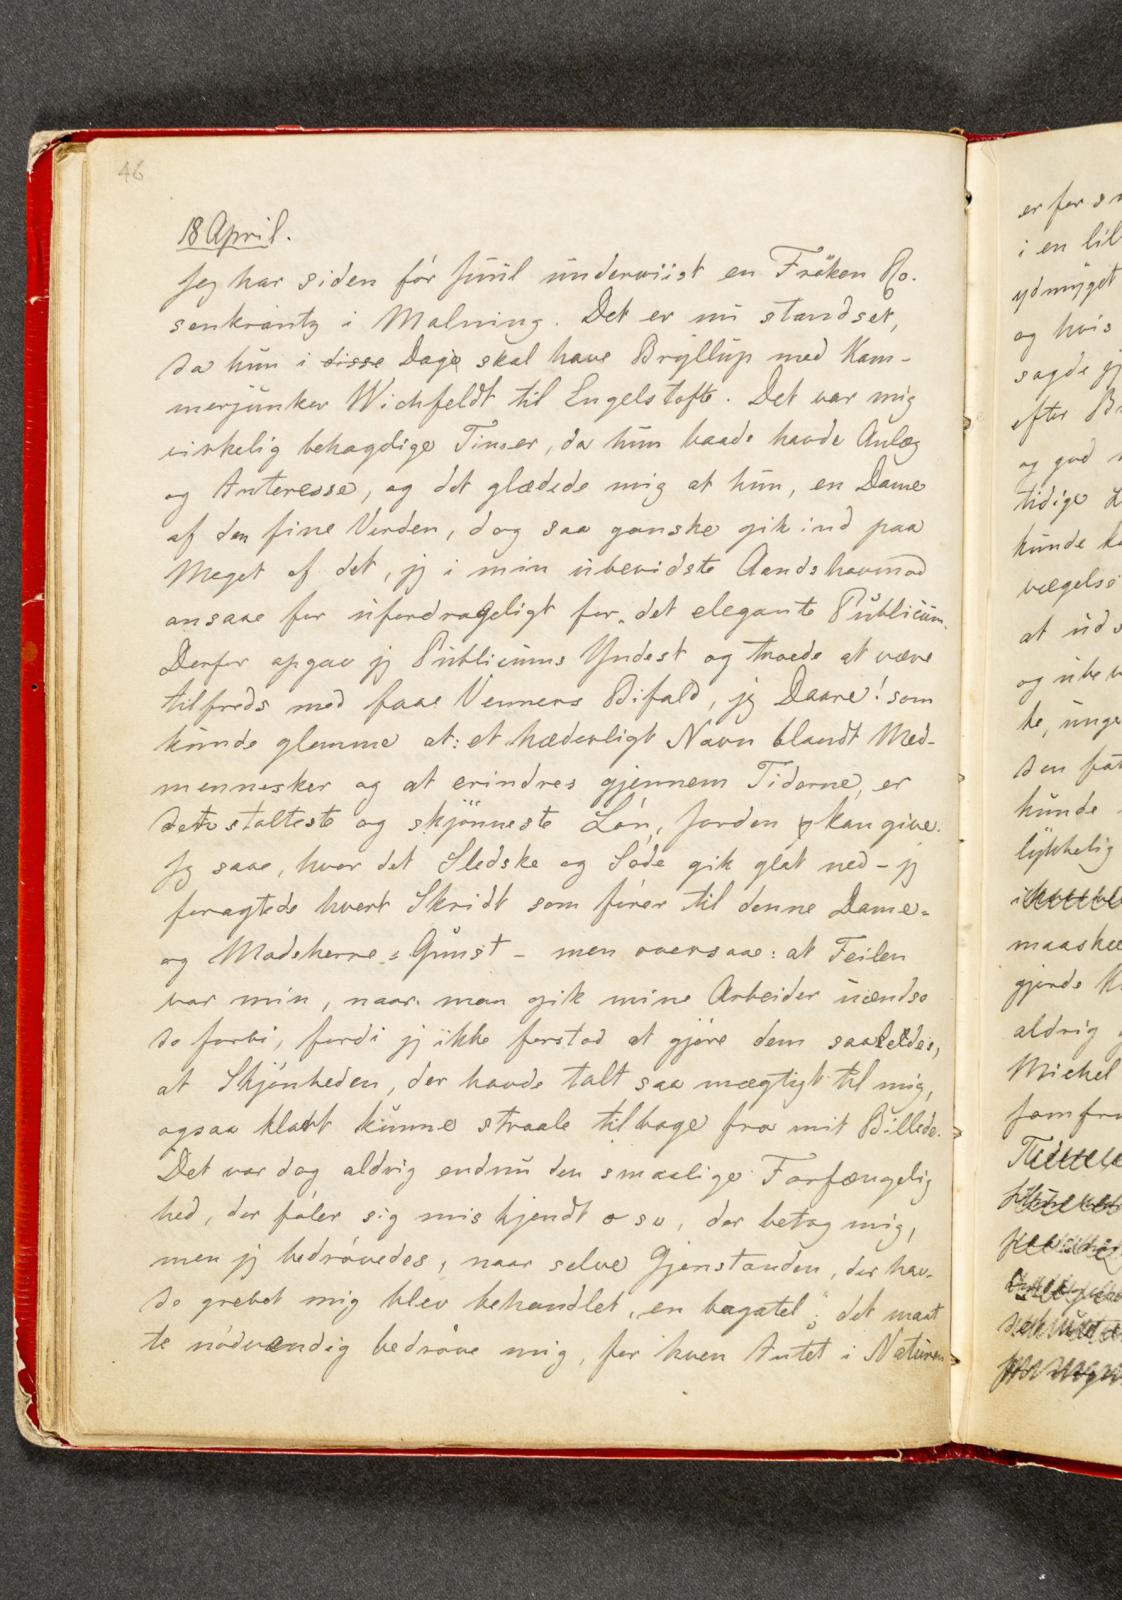 46
18 April.
Jeg har siden før Juul underviist en Frøken Ro-
senkrantz i Malning. Det er nu standset,
da hun i disse Dage skal have Bryllup med Kam-
merjunker Wichfeldt til Engelstofte. Det var mig
virkelig behagelige Timer, da hun baade havde Anlæg
og Interesse, og det glædede mig at hun, en Dame
af den fine Verden, dog saa ganske gik ind paa
Meget af det, jeg i min ubevidste Aandshovmod
ansaae for ufordrageligt for "det elegante Publicum.
Derfor opgav jeg Publicums Yndest og troede at være
tilfreds med faae Venners Bifald, jeg Daare! som
kunde glemme at: et hæderligt Navn blandt Med-
mennesker og at erindres gjennem Tiderne, er
det stolteste og skjönneste Løn, Jorden kan give.
Jeg saae, hvor det Sledske og Søde gik glat ned - jeg
foragtede hvert Skridt som fører til denne Dame-
og Modeherre-Gunst - men oversaae: at Feilen
var min, naar man gik mine Arbeider uændse
de forbi, fordi jeg ikke forstod at gjøre dem saaledes,
at Skjønheden, der havde talt saa mægtigt til mig,
ogsaa klart kunne straale tilbage fra mit Billede.
Det var dog aldrig endnu den smaalige Forfængelig
hed, der føler sig miskjendt o sv, der betog mig,
men jeg bedrøvedes, naar selve Gjenstanden, der hav-
de grebet mig blev behandlet "en bagatel"; det maat
te nødvendig bedrøve mig, for hvem Intet i Naturen
er for
i en lil
ydmyget
og hvis
sagde
efter
og god
tidige
kunde
vægelse
at uds
og ubev
te, unge
den
kunde
lykkelig
maaskee
gjorde
aldrig
Michel
Jomfru